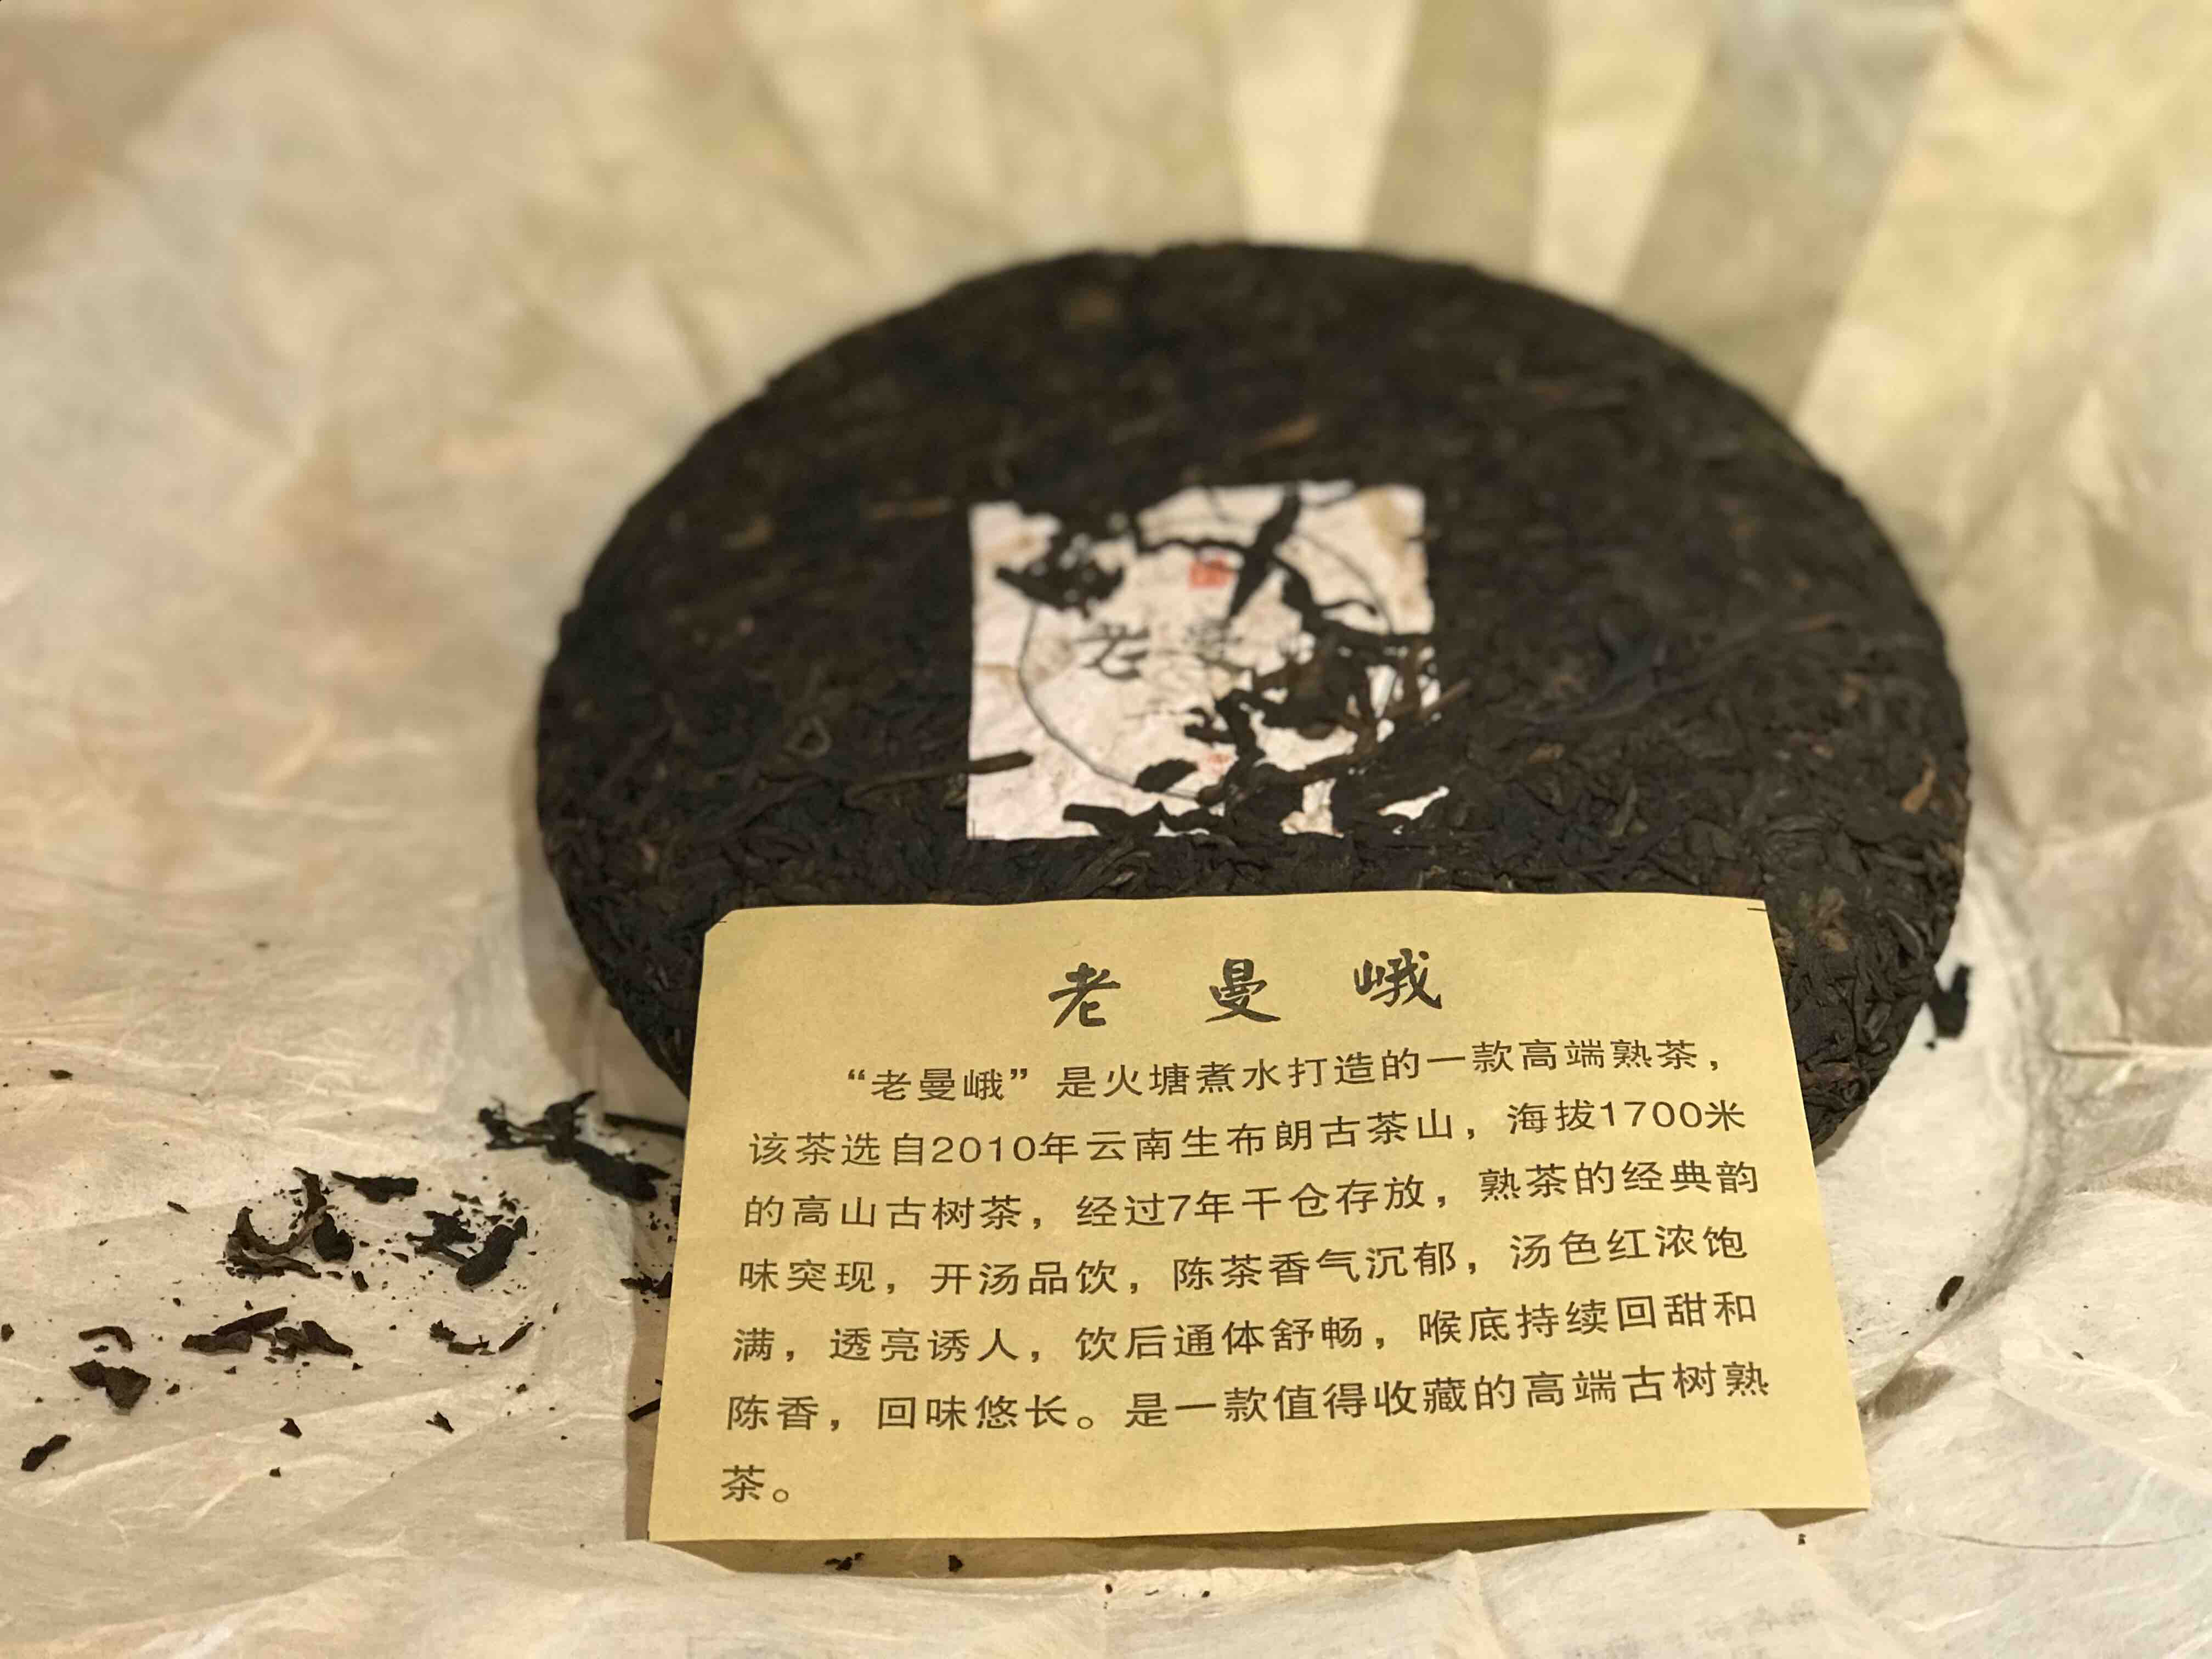 老曼
老曼峨
“老曼峨”是火塘煮水打造的一款高端熟茶，
该茶选自2010年云南生布朗古茶山，海拔1700米
的高山古树茶，经过7年干仓存放，熟茶的经典韵
味突现，开汤品饮，陈茶香气沉郁，汤色红浓饱
满，透亮诱人，饮后通体舒畅，喉底持续回甜和
陈香，回味悠长。是一款值得收藏的高端古树熟
茶。